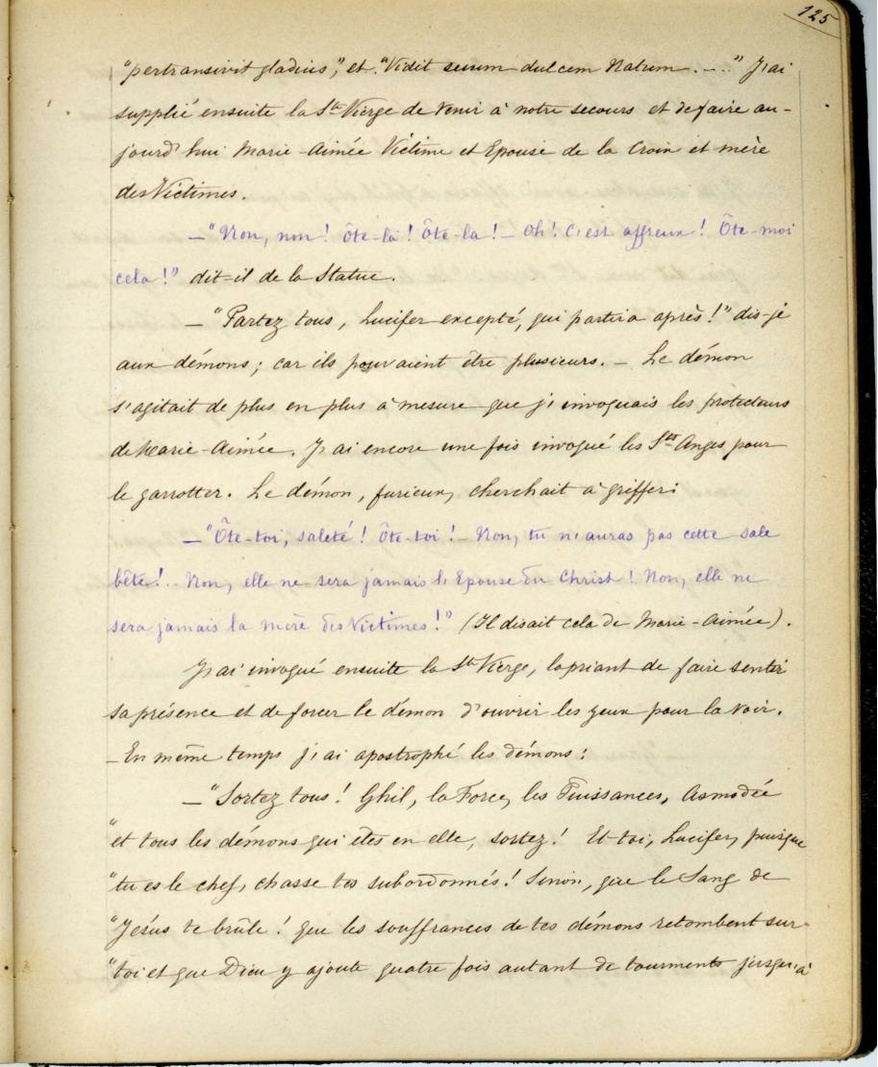 125
"pertransivit gladius", et "Vidit suum dulcem Natum. -..." J'ai
supplié ensuite la Ste Vierge de venir à notre secours et de faire au-
jourd'hui Marie-Aimée Victime et Epouse de la Croix et mère
des Victimes.
—"Non, non! Ôte-la! Ôte-la! — Oh! C'est affreux! Ôte-moi
cela!" dit-il de la Statue.
—"Partez tous, Lucifer excepté, qui partira après!" dis-je
aux démons; car ils pouvaient être plusieurs. — Le démon
s'agitait de plus en plus à mesure que j'invoquais les protecteurs
de Marie-Aimée. J'ai encore une fois invoqué les Sts Anges pour
le garrotter. Le démon, furieux, cherchait à griffer:
—"Ôte-toi, saleté! Ôte-toi! — Non, tu n'auras pas cette sale
bête!.. Non, elle ne sera jamais l'Epouse du Christ! Non, elle ne
sera jamais la mère des Victimes!" (Il disait cela de Marie-Aimée).
J'ai invoqué ensuite la Ste Vierge, la priant de faire sentir
sa présence et de forcer le démon d'ouvrir les yeux pour la voir.
— En même temps j'ai apostrophé les démons:
—"Sortez tous! Ghil, la Force, les Puissances, Asmodée
"et tous les démons qui êtes en elle, sortez! Et toi, Lucifer, puisque
"tu es le chef, chasse tes subordonnés! Sinon, que le Sang de
"Jésus te brûle! Que les souffrances de tes démons retombent sur
"toi et que Dieu y ajoute quatre fois autant de tourments jusqu'à